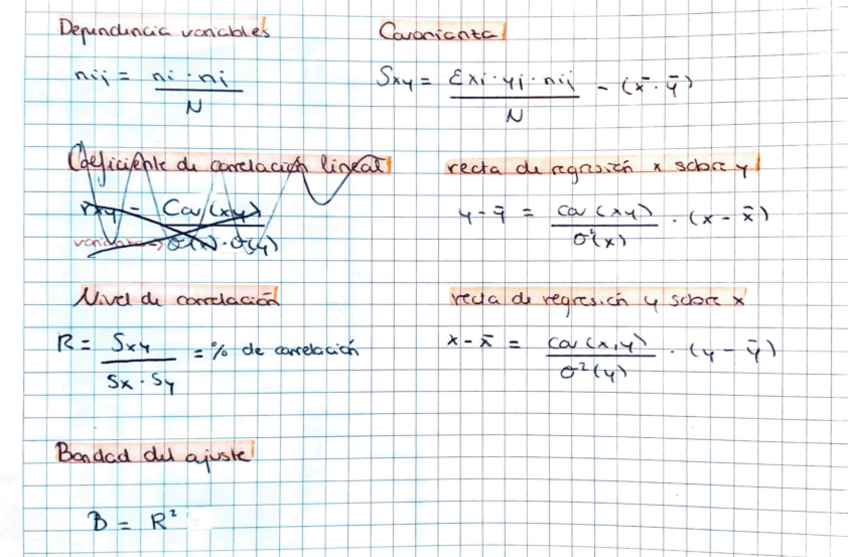 Dependencia variables
nij = ni · nj / N
Covarianza
Sxy = Σxi · yj · nij / N - (x̄ · ȳ)
Coeficiente de correlación lineal
rxy = Cov(xy) / σ(x) · σ(y)
recta de regresión x sobre y
y - ȳ = cov (xy) / σ²(x) · (x - x̄)
Nivel de correlación
R = Sxy / Sx · Sy = % de correlación
recta de regresión y sobre x
x - x̄ = cov (x,y) / σ²(y) · (y - ȳ)
Bondad del ajuste
B = R²